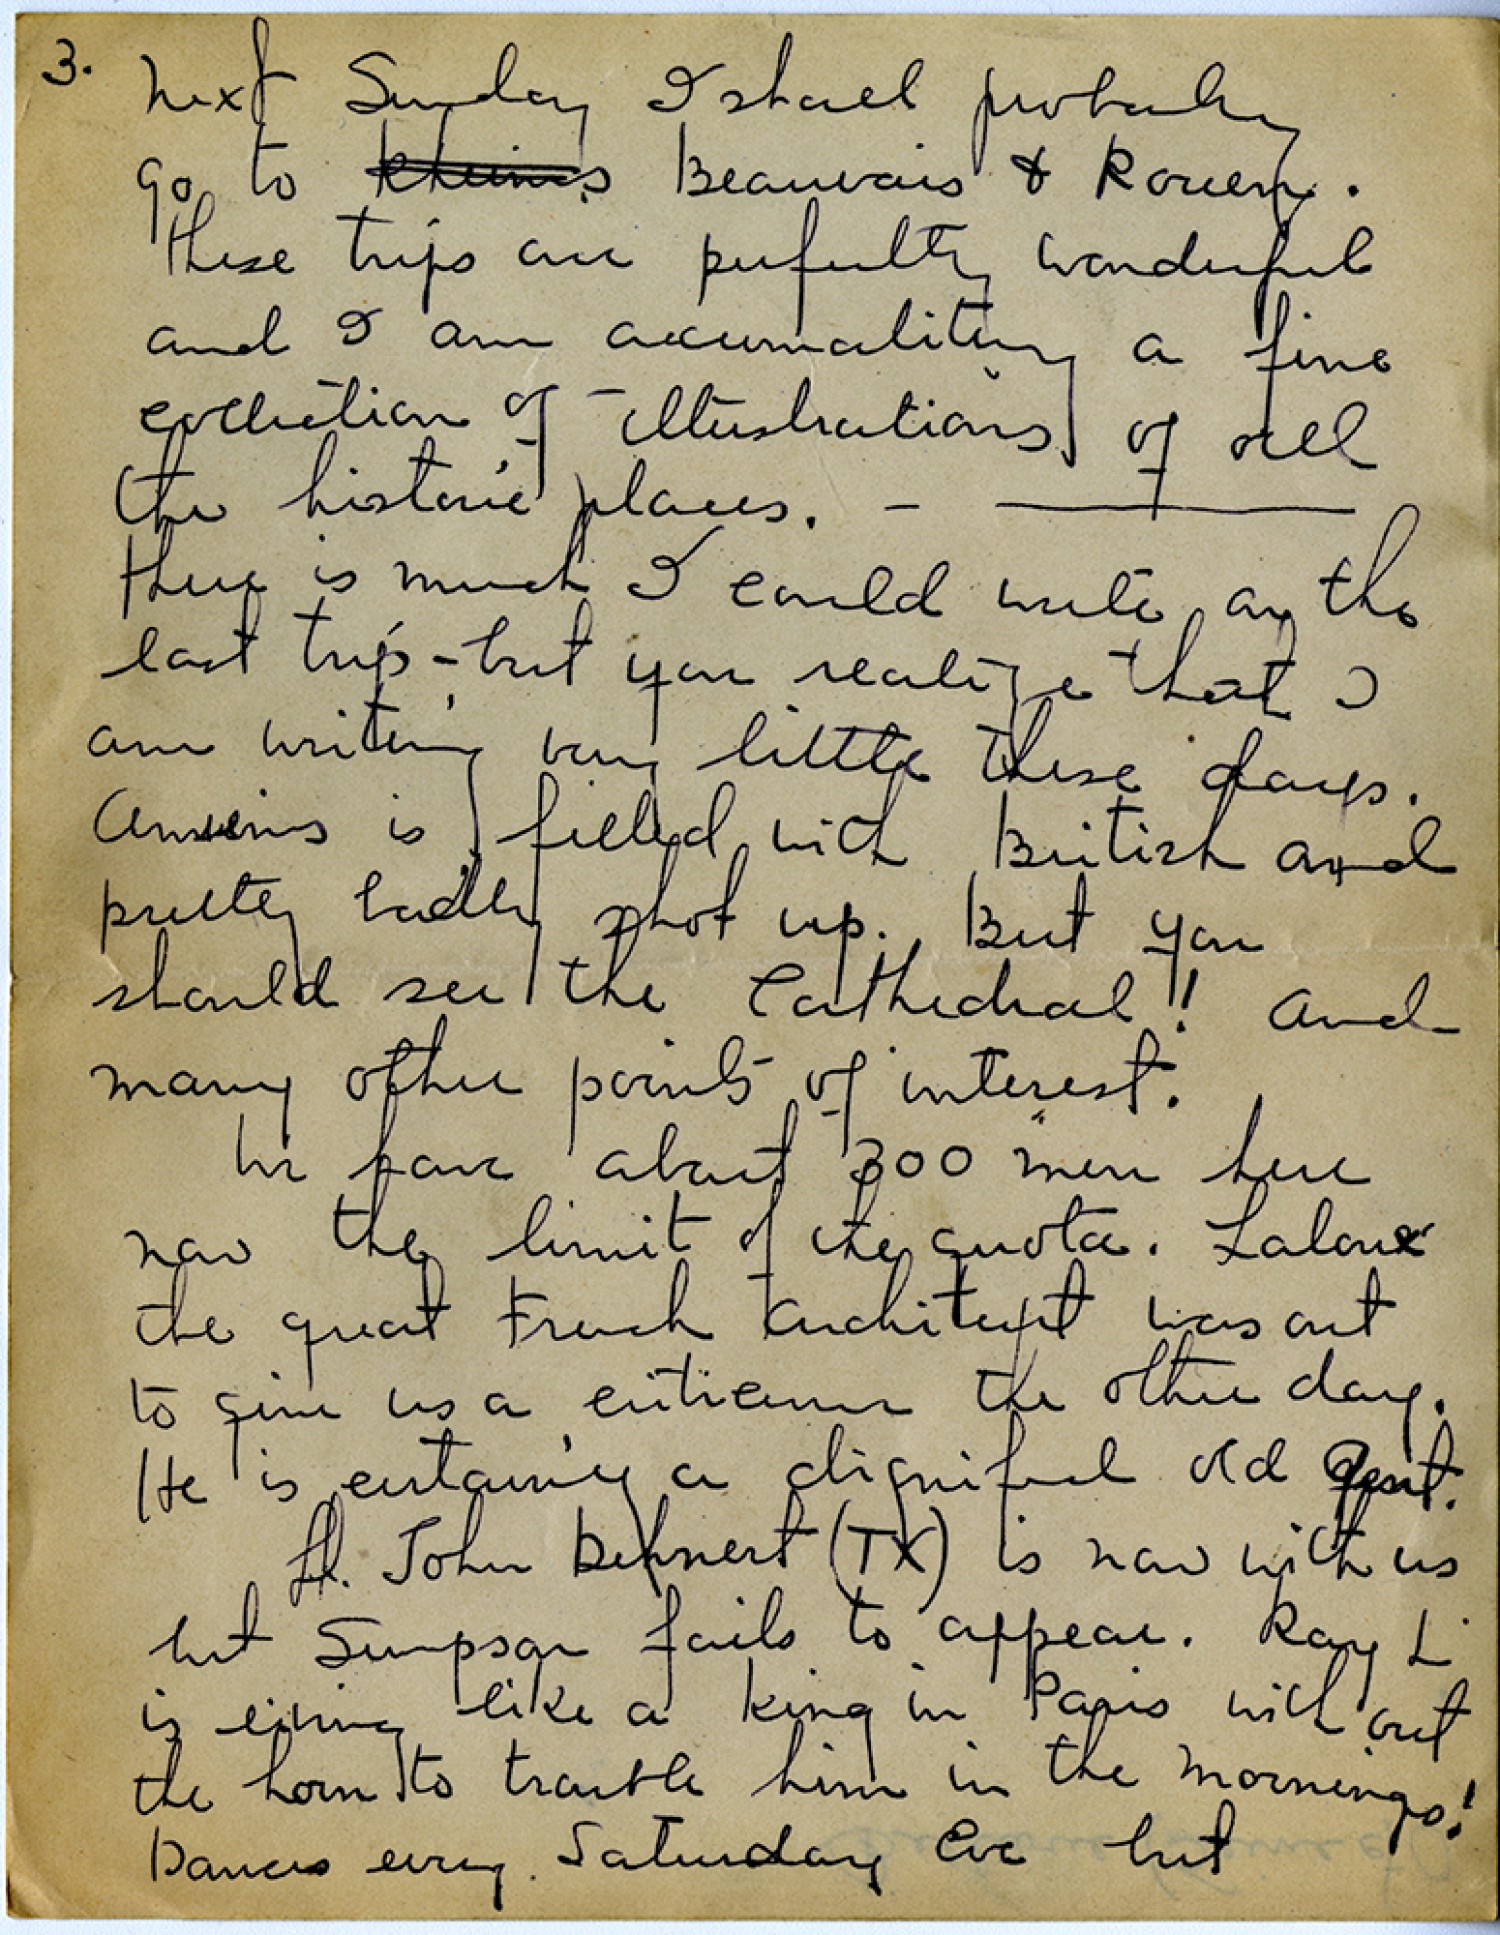 3.
Next Sunday I shall probably
go to Rheims Beauvais & Rouen.
These trips are perfectly wonderful
and I am accumaliting a fine
collection of illustrations of all
the historic places. -
There is much I could write on the
last trip - but you realize that I
am writing very little these days.
Amiens is filled with British and
pretty badly shot up. But you
should see the Cathedral! And
many other points of interest.
We have about 300 men here
now the limit of the quota. Laloux
the great French Architect was out
to give us a criticism the other day.
He is certainly a dignified old Gent.
Lt. John Dehnert (TX) is now with us
but Simpson fails to appear. Ray L
is living like a king in Paris without
the horn to trouble him in the mornings!
Dances every Saturday Eve but